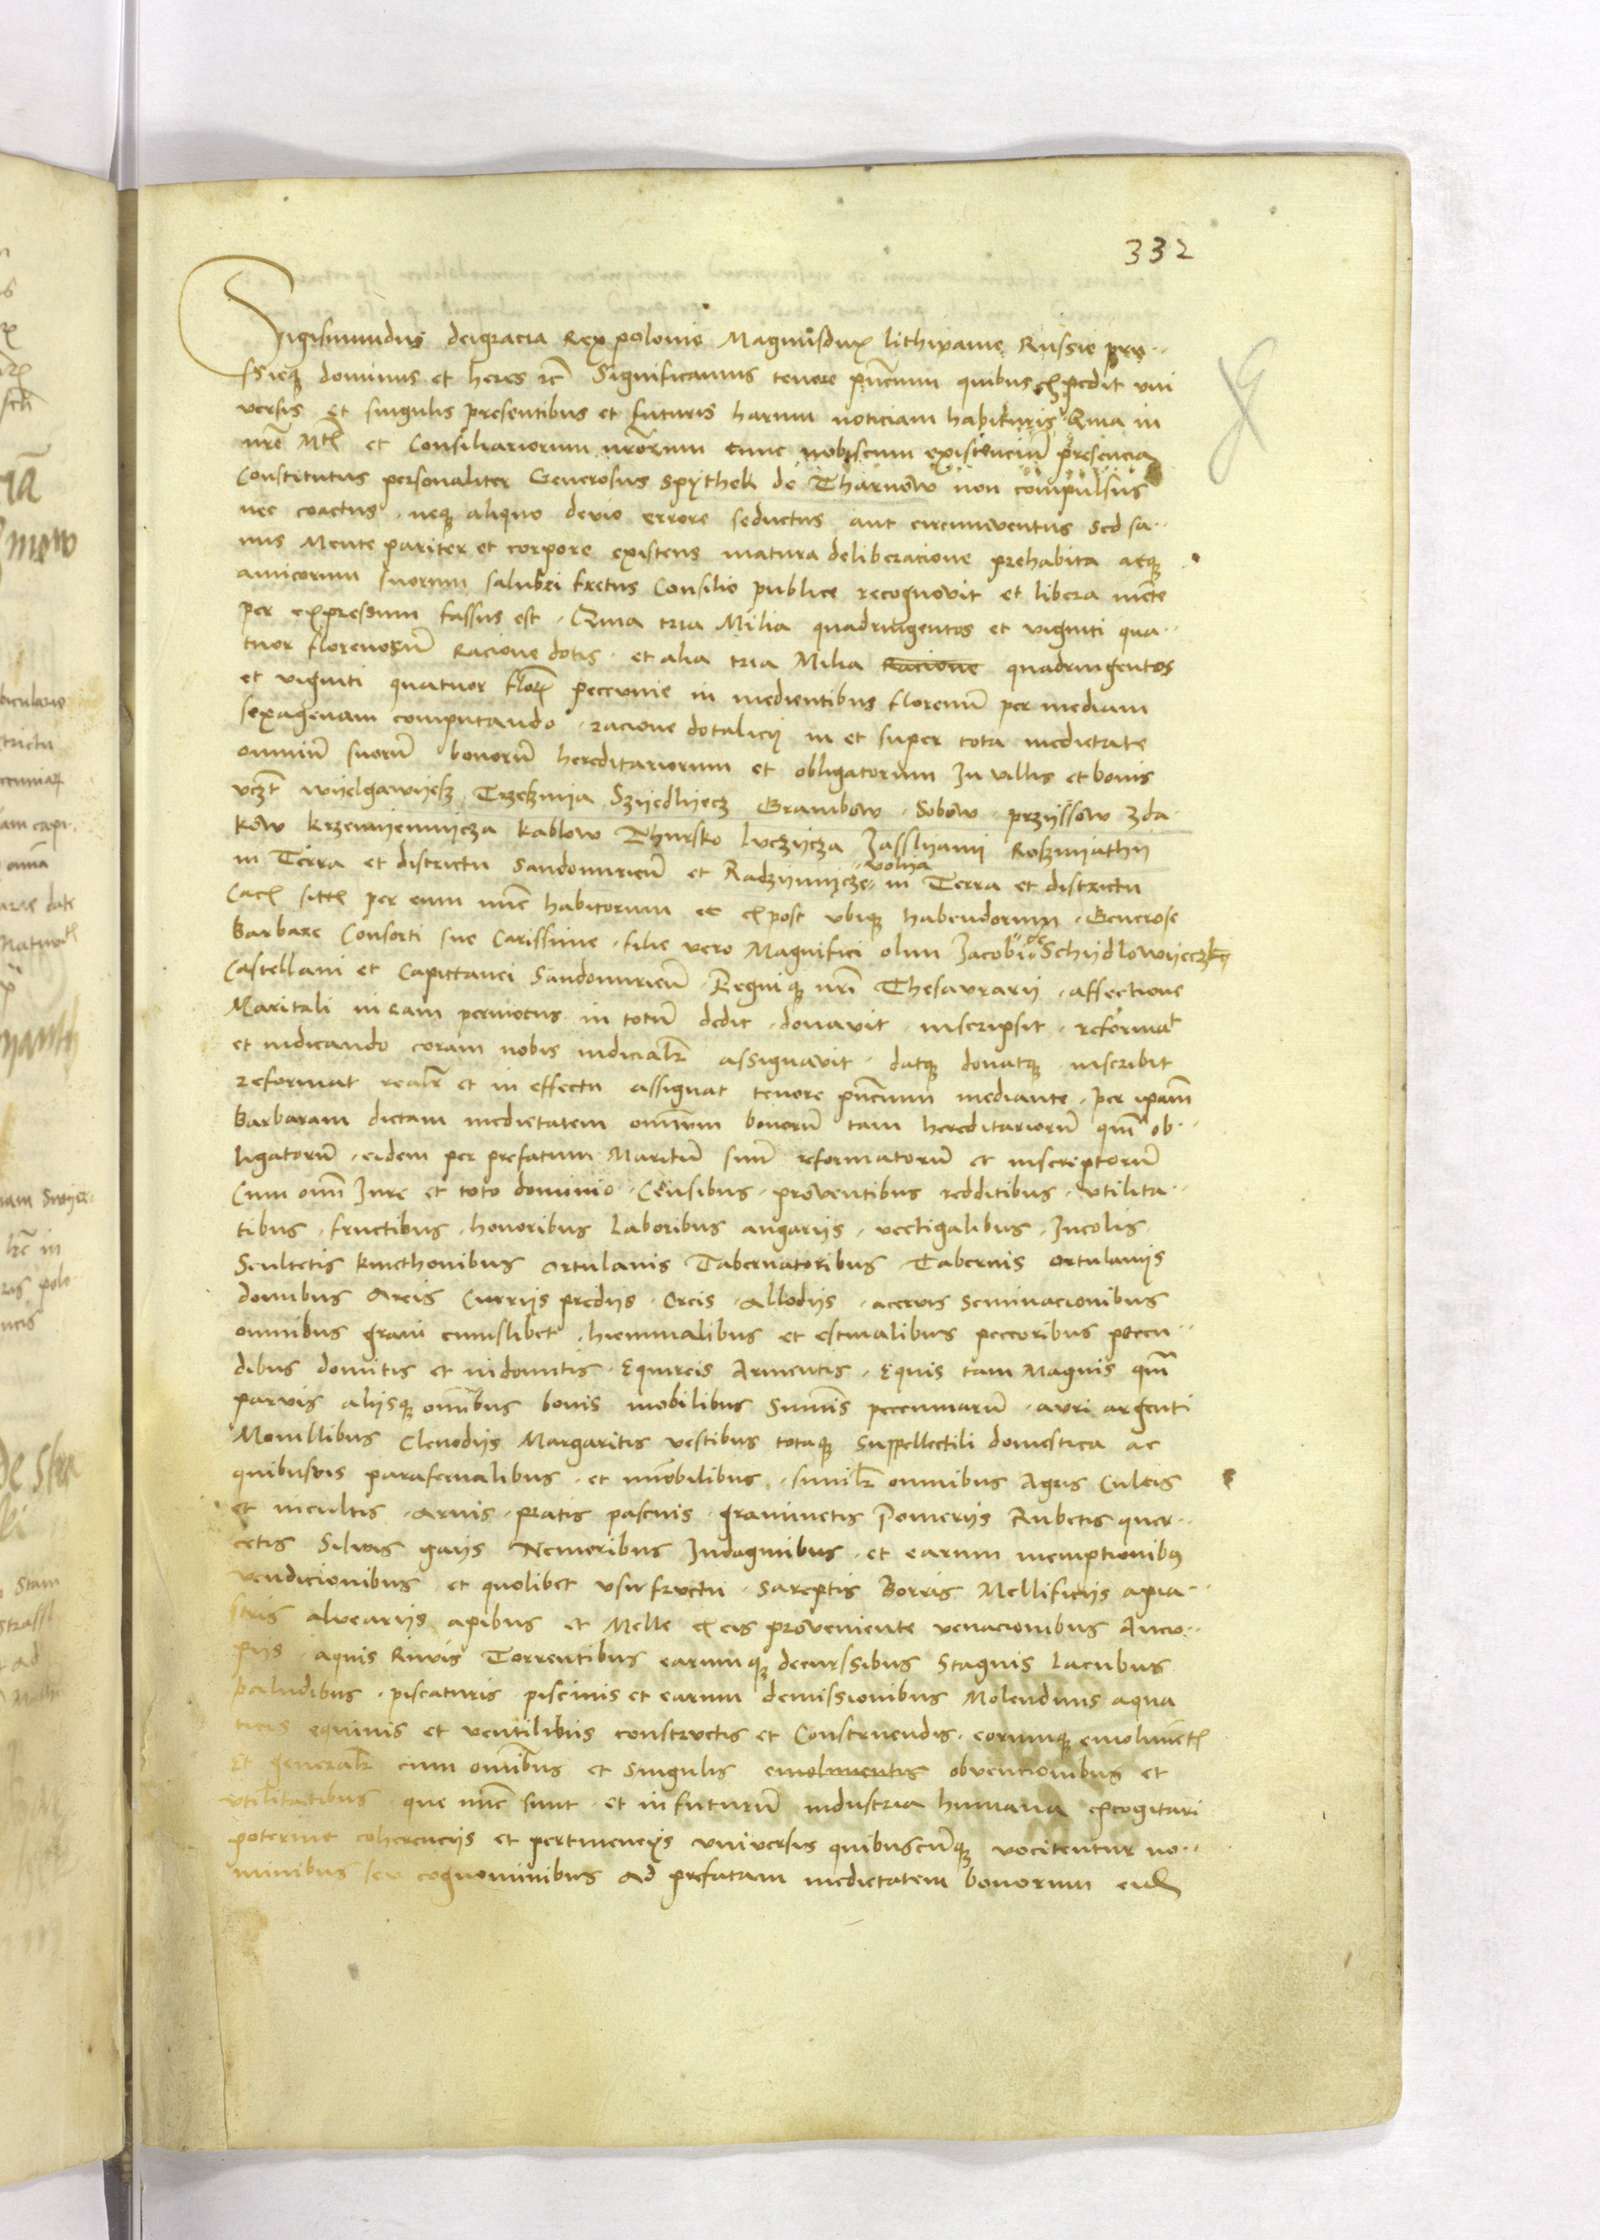 332
Sigismundus dei gracia Rex polonie Magnusdux lithwanie Russie pru..
ssieq dominus et heres etc Significamus tenore pntium quibus expedit vni
versis et singulis presentibus et futuris harum noticiam habituris Quia in
nre Mtis et Consiliariorum nrorum tunc nobiscum existenciu presencia
Constitutus personaliter Generosus Spythek de Tharnow non compulsus
nec coactus neq aliquo devio errore seductus aut circumventus Sed sa..
nus Mente pariter et corpore existens matura deliberacione prehabita atq
amicorum suorum salubri fretus Consilio publice recognovit et libera mente
per expressum fassus est Quia tria Milia quadringentos et viginti qua..
tuor florenoru Racione dotis et alia tria Milia Racione quadringentos
et viginti quatuor flor peccunie in medientibus florenu per mediam
sexagenam computando racione dotalicij in et super tota medietate
omniu suoru bonoru hereditariorum et obligatorum In villis et bonis
vczt Wyelgawyesz Trzeszmya Szyedlyecz Grambow Sobow przyssow zda
kow krzemyennycza kablow Thursko luczycza Jasslyany Roszmyathy
in Terra et districtu Sandomirien et Radzymycze volya in Terra et districtu
Cacz sittis per eum nunc habitorum et expost vbiq habendorum Generose
Barbare Consorti sue Carissime filie vero Magnifici olim Jacobi de Schydlowyeczky
Castellani et Capittanei Sandomirien Regniq nri Thesaurarii affectione
Maritali in eam permotus in totu dedit donavit inscripsit reformat
et indicando coram nobis indicialr assignavit datq donatq inscribit
reformat realr et in effectu assignat tenore pntium mediante per ipam
Barbaram dictam medietatem omnium bonoru tam hereditarioru qm ob..
ligatoru eidem per prefatum Maritu suu reformatoru et inscreptoru
Cum omni Iure et toto dominio Censibus proventibus redditibus vtilita..
tibus fructibus honoribus laboribus angarijs vectigalibus Incolis
Scultetis kmethonibus ortulanis Tabernatoribus Tabernis ortulanijs
domibus areis Curijs predijs Orreis Allodijs acervis Seminacionibus
omnibus grani cuiuslibet hiemmalibus et estivalibus peccoribus peccu..
dibus domitis et indomitis Equireis Armentis Equis tam Magnis qm
parvis alijsq omnibus bonis mobilibus Summis peccuniaru auri argenti
Monillibus Clenodijs Margaritis vestibus totaq Suppellectili domestica ac
quibusvis parafernalibus et immobilibus similr omnibus Agris Cultis
et incultis Arvis pratis pascuis graminetis Pomerijs Rubetis quer..
cetis Silvis gaijs Nemoribus Indaginibus et earum inemptionibus
vendicionibus et quolibet vsufructu Sareptis Borris Mellificijs apia..
stris alvearijs apibus et Melle ex eis proveniente venacionibus Aucu..
pijs aquis Rivis Torrentibus earumq decurssibus Stagnis Lacubus
paludibus piscaturis piscinis et earum demissionibus Molendinis aqua
ticis equinis et ventilibus constructis et Construendis eorumq emolument
Et generalr cum omnibus et singulis emolumentis obvencionibus et
vtilitatibus que nunc sunt et in futuru industria humana excogitari
poterint coherencijs et pertinencijs vniversis quibuscunq vocitentur no..
minibus seu cognominibus ad prefatam medietatem bonorum eid